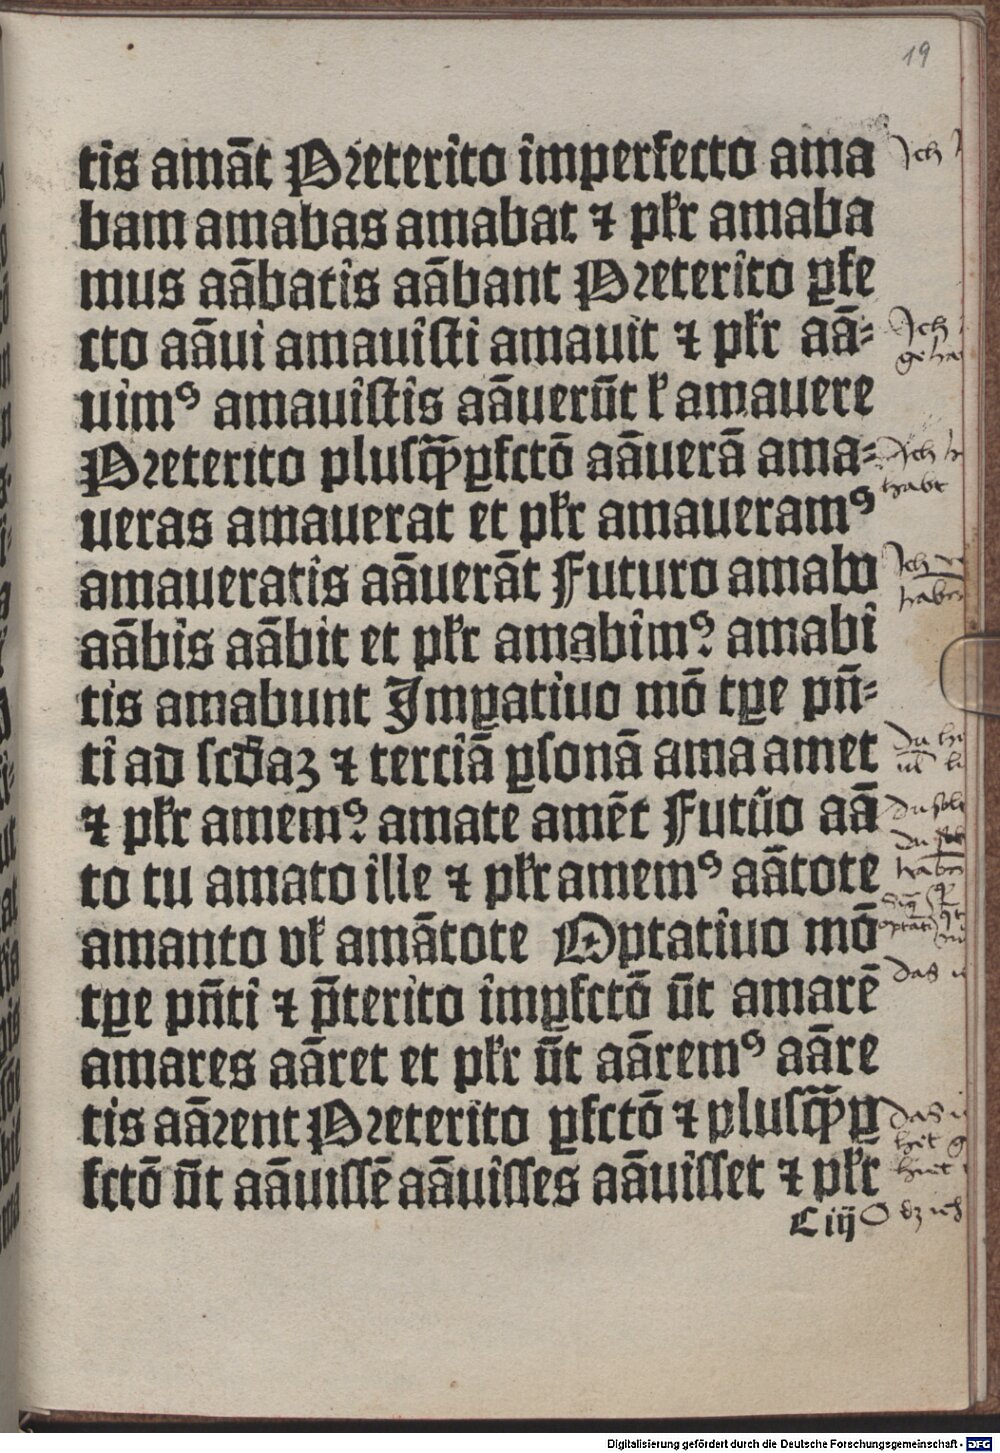 19
tis amāt Preterito imperfecto ama
bam amabas amabat ⁊ płr amaba
mus aābatis aābant Preterito ꝑfe
cto aāui amauisti amauit ⁊ płr aā⸗
uimꝰ amauistis aāuerūt ł amauere
Preterito plusq̃ꝑfctō aāuerā ama⸗
ueras amauerat et płr amaueramꝰ
amaueratis aāuerāt Futuro amabo
aābis aābit et płr amabimꝰ amabi
tis amabunt Imꝑatiuo mō tꝑe pn̄⸗
ti ad scd̄aʒ ⁊ terciā ꝑsonā ama amet
⁊ płr amemꝰ amate amēt Futūo aā
to tu amato ille ⁊ płr amemꝰ aātote
amanto vł amātote Optatiuo mō
tꝑe pn̄ti ⁊ p̄terito imꝑfctō vt̄ amarē
amares aāret et płr vt̄ aāremꝰ aāre
tis aārent Preterito ꝑfctō ⁊ plusq̃ꝑ
fctō vt̄ aāuissē aāuisses aāuisset ⁊ płr
C iij
Jch
Jch
Jch
habt
Jch
das
das
Digitalisierung gefördert durch die Deutsche Forschungsgemeinschaft - DFG